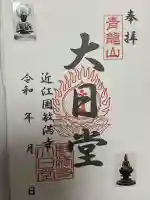 奉拝
青龍山
大日堂
近江国敏満寺
令和 年 月 日